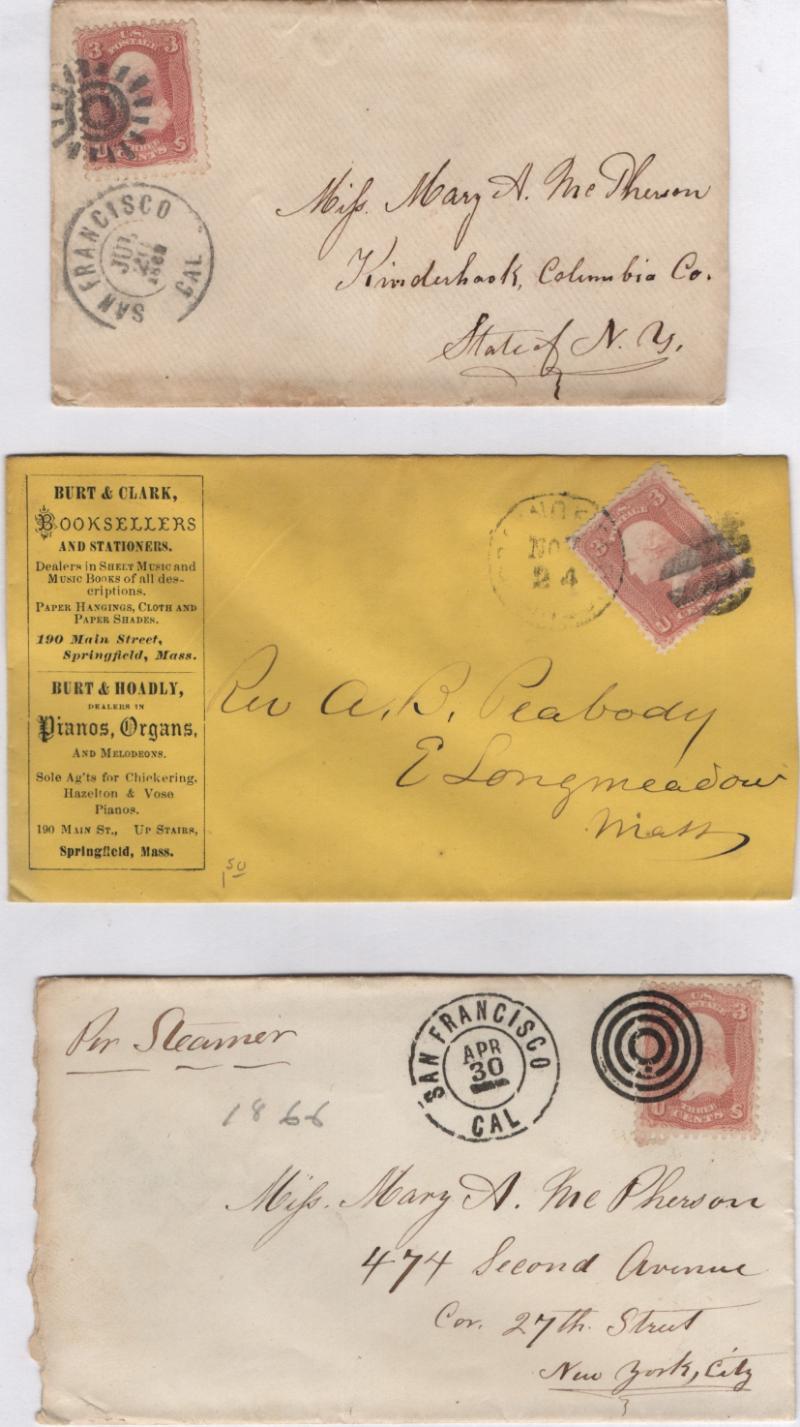 3 U.S. 3
POSTAGE
U THREE S
CENTS
SAN FRANCISCO
JUL
CAL
Miss. Mary A. McPherson
Kinderhook, Columbia Co.
State of N. Y.
BURT & CLARK,
BOOKSELLERS
AND STATIONERS.
Dealers in SHEET MUSIC and
MUSIC BOOKS of all des-
criptions.
PAPER HANGINGS, CLOTH AND
PAPER SHADES.
190 Main Street,
Springfield, Mass.
BURT & HOADLY,
DEALERS IN
Pianos, Organs,
AND MELODEONS.
Sole Ag'ts for Chickering,
Hazelton & Vose
Pianos.
190 MAIN ST., UP STAIRS,
Springfield, Mass.
NOV
24
3 U.S. 3
POSTAGE
U
CENTS
Rev A. B. Peabody
E Longmeadow
Mass
1 50
Per Steamer
1866
SAN FRANCISCO
APR
30
CAL
U.S. 3
U THREE S
CENTS
Miss. Mary A. McPherson
474 Second Avenue
Cor. 27th. Street
New York, City